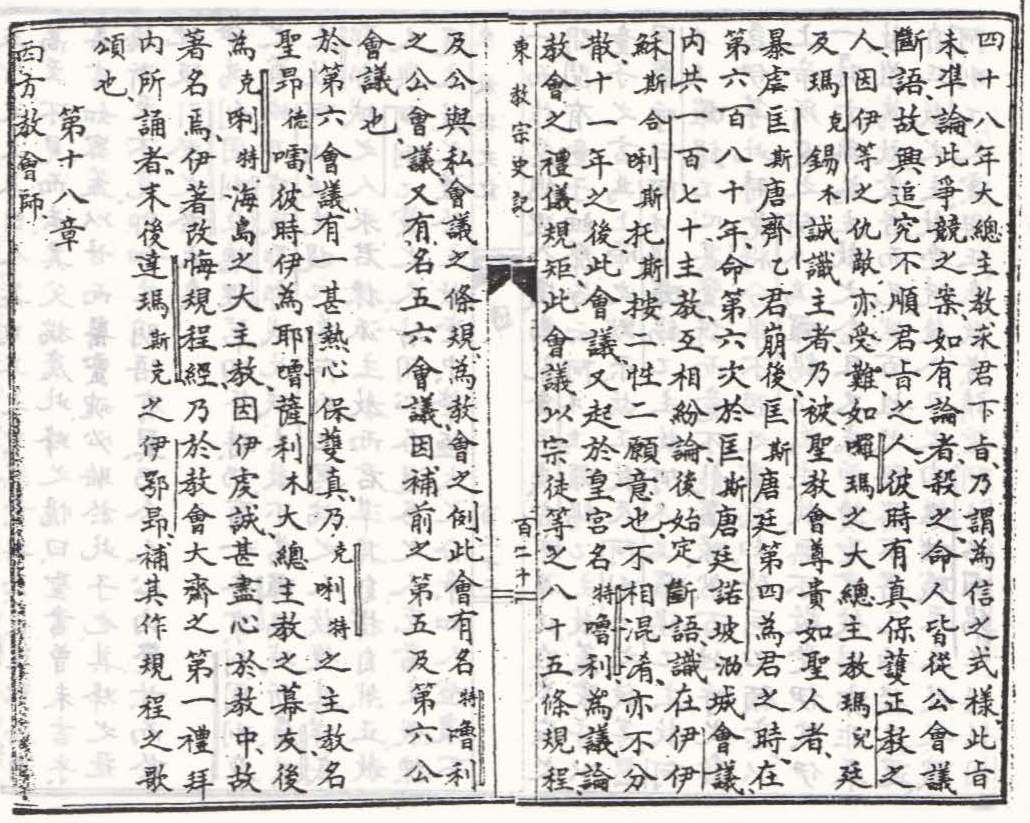 四十八年大總主教求君下旨、乃謂為信之式樣、此旨
未準論此爭競之案、如有論者、殺之命人皆從公會議
斷語、故興追究不順君旨之人、彼時有真保護正教之
人、因伊等之仇敵、亦受難、如囉瑪之大總主教瑪兒廷
及瑪克錫木誠識主者、乃被聖教會尊貴如聖人者、
暴虐匡斯唐齊乙君崩後、匡斯唐廷第四為君之時、在
第六百八十年、命第六次於匡斯唐廷諾坡泐城會議、
內共一百七十主教、互相紛論、後始定斷語、識在伊伊
穌斯合唎斯托斯、按二性二願意也、不相混淆、亦不分
散、十一年之後、此會議、又起於皇宮名特嚕利為議論
教會之禮儀規矩、此會議以宗徒等之八十五條規程、
東教宗史記
百二十
及公與私會議之條規、為教會之例、此會有名特嚕利
之公會議、又有名五六會議、因補前之第五及第六公
會議也、
於第六會議有一甚熱心保護真、乃克唎特之主教名
聖昂德嚅、彼時伊為耶嚕薩利木大總主教之幕友、後
為克唎特海島之大主教、因伊虔誠甚盡心於教中、故
著名焉、伊著改悔規程經、乃於教會大齋之第一禮拜
內所誦者、末後達瑪斯克之伊鄂昂、補其作規程之歌
頌也、
第十八章
西方教會師